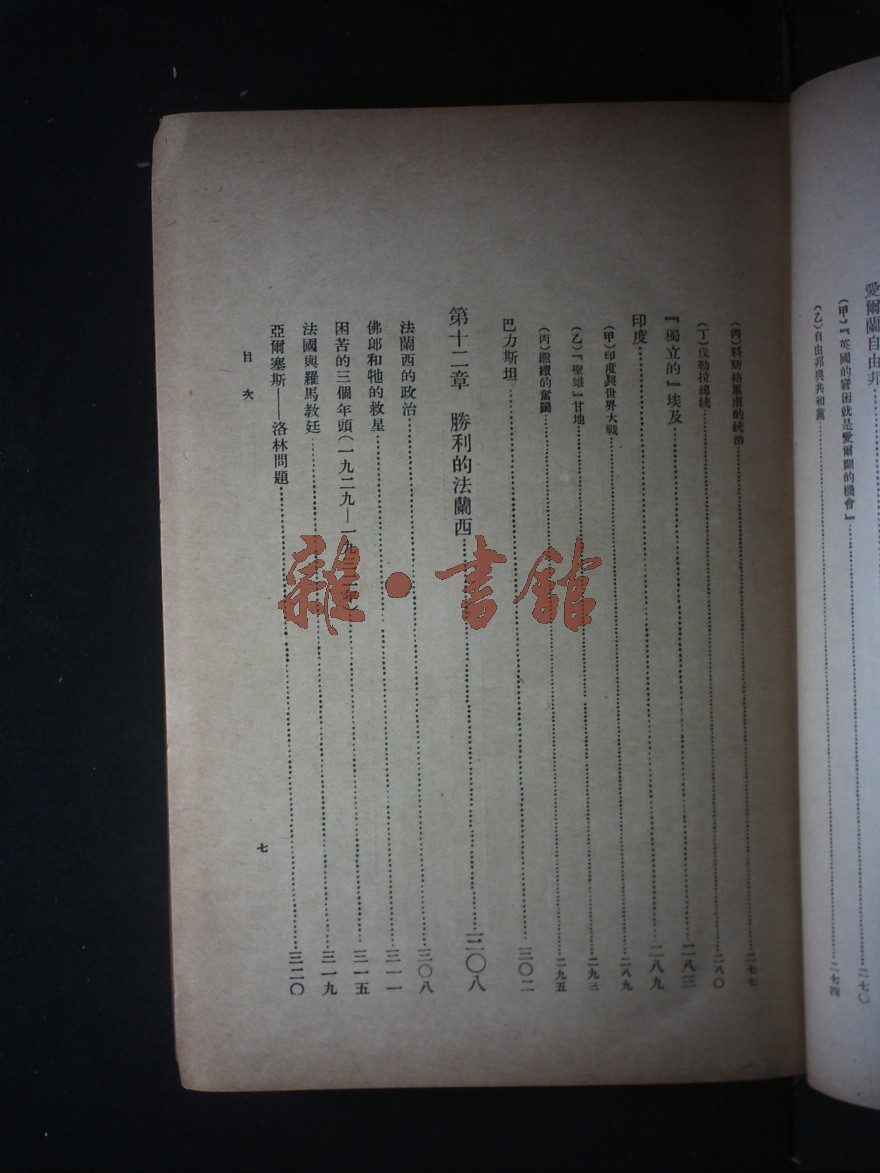 愛爾蘭自由邦……二七〇
(甲)『英國的窘困就是愛爾蘭的機會』
(乙)自由邦與共和黨……二七四
(丙)科斯格累甫的統治……二七七
(丁)伐勒拉總統……二八〇
『獨立的』埃及……二八三
印度……二八九
(甲)印度與世界大戰……二八九
(乙)『聖雄』甘地……二九三
(丙)繼續的奮鬭……二九五
巴力斯坦……三〇二
第十二章 勝利的法蘭西……三〇八
法蘭西的政治……三〇八
佛郎和牠的救星……三一一
困苦的三個年頭(一九二九—一九三二年)……三一五
法國與羅馬教廷……三一九
亞爾塞斯——洛林問題……三二〇
目次
七
雜·書館